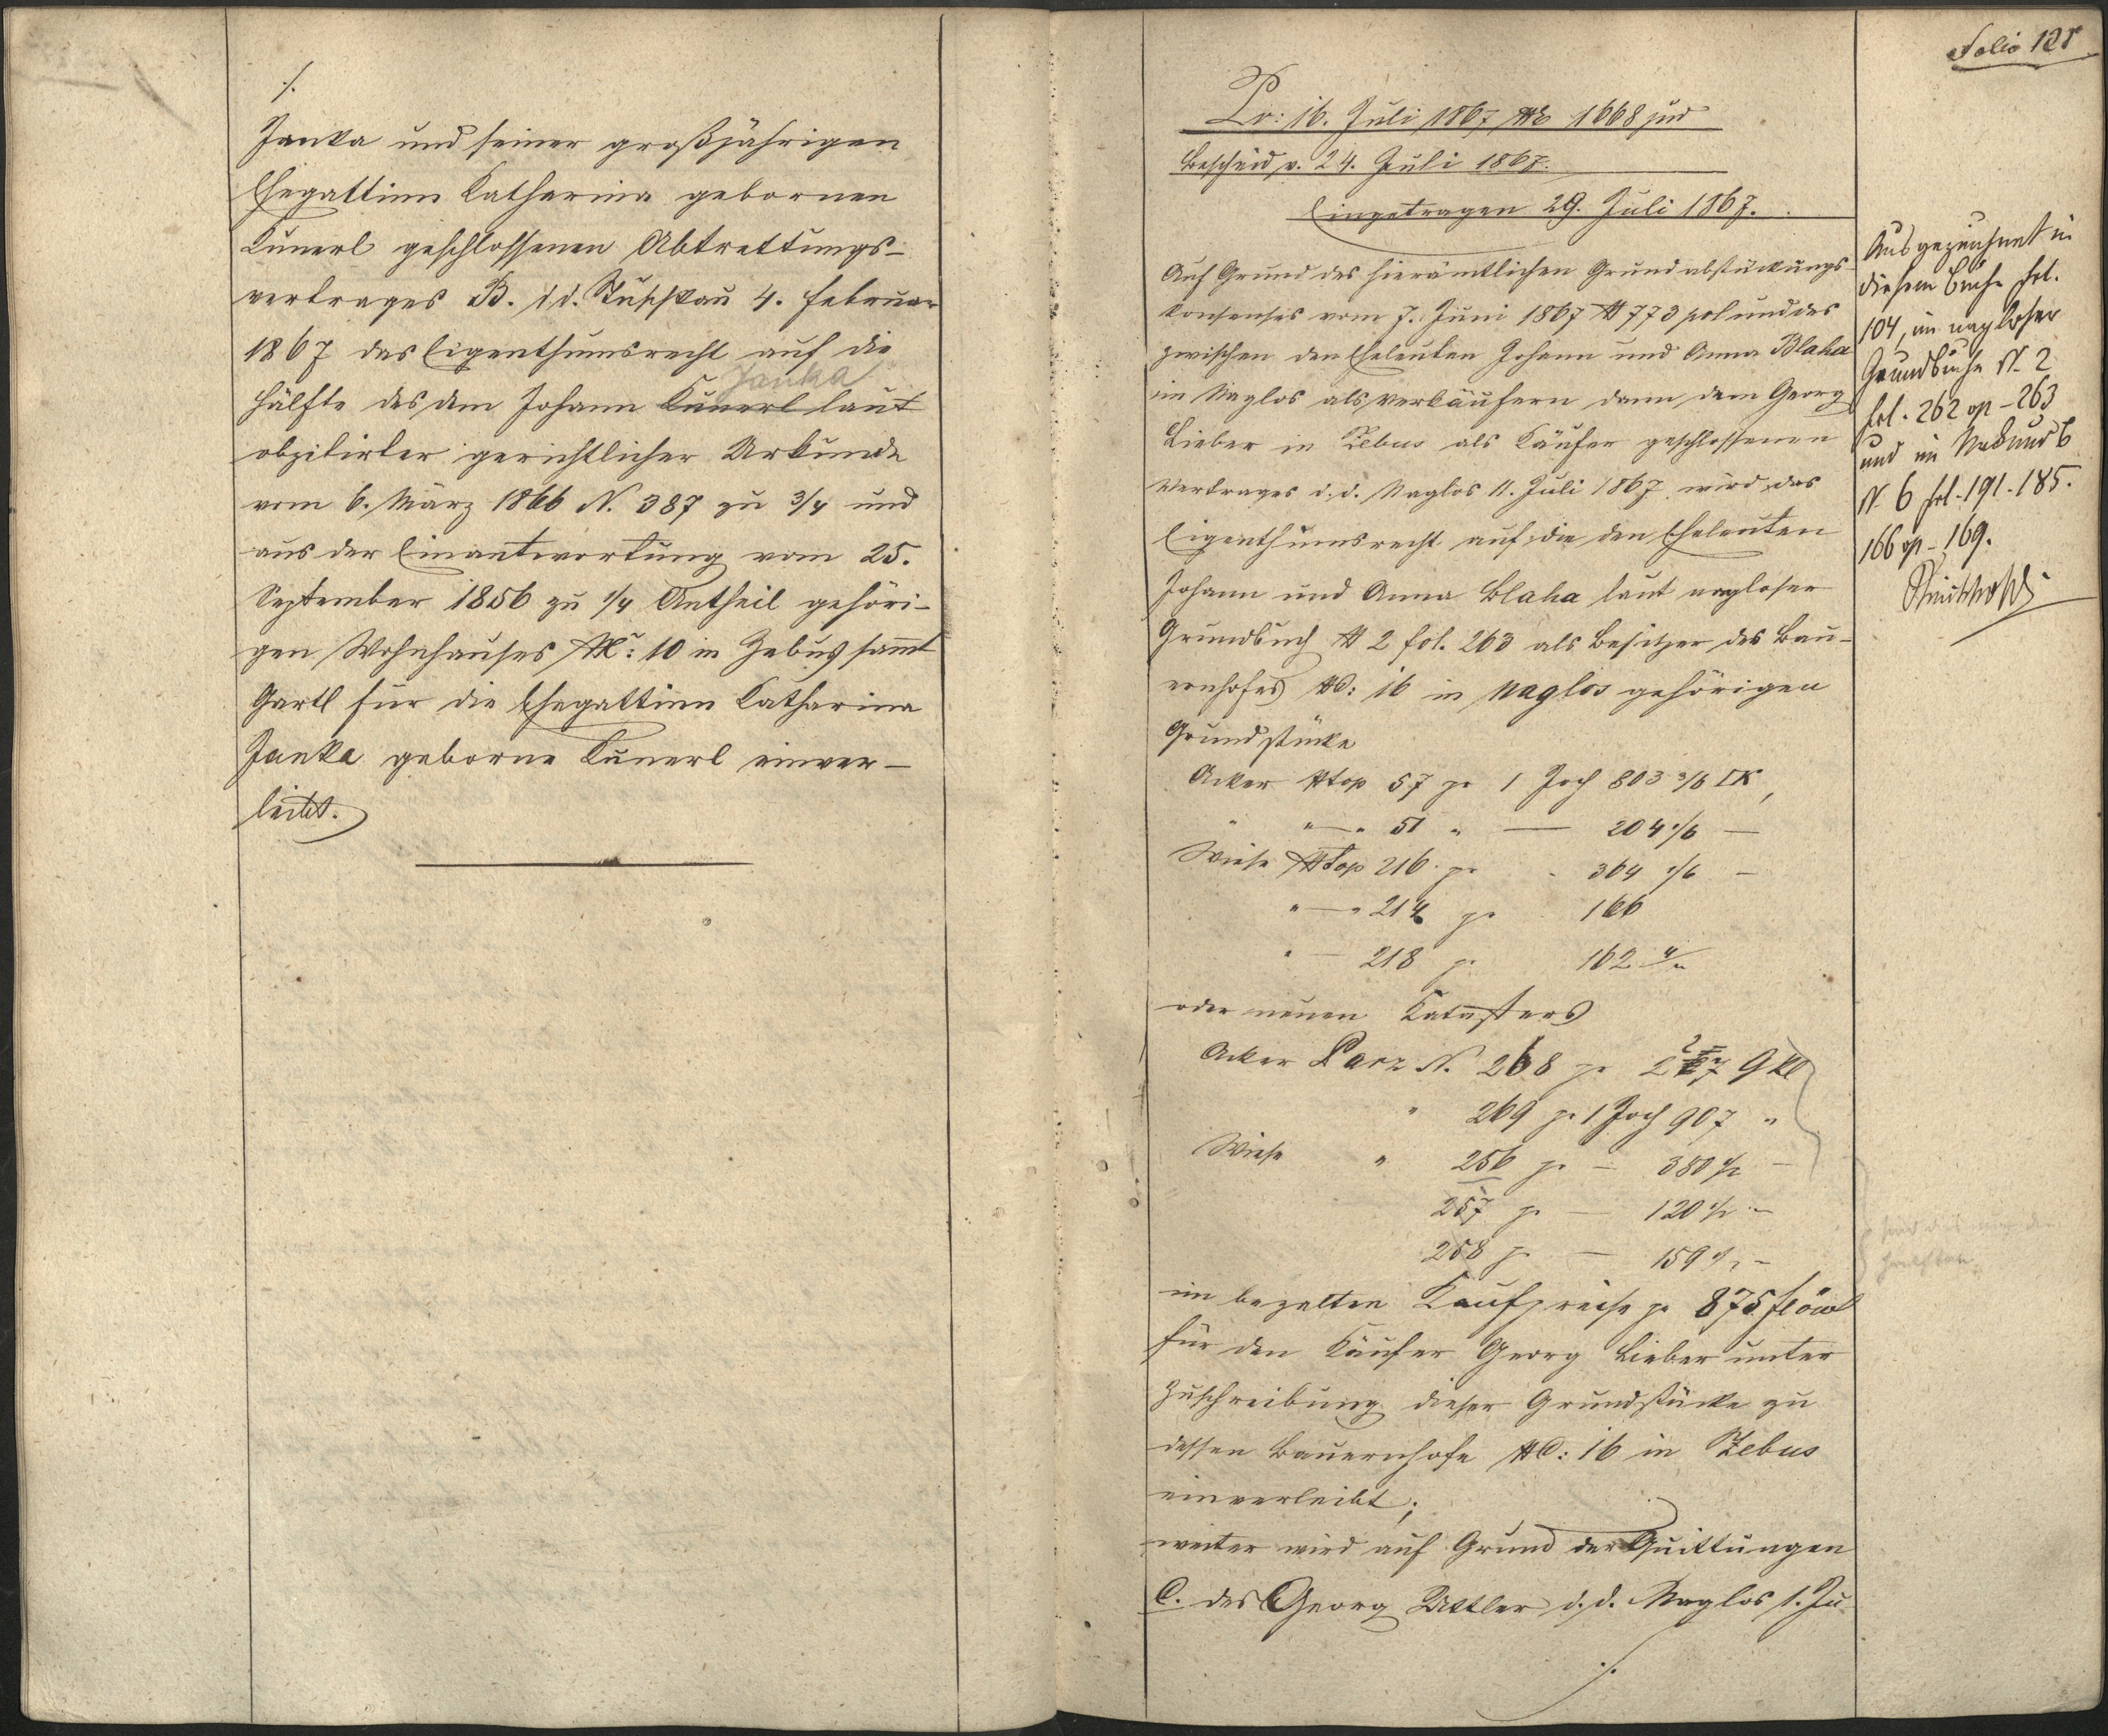 ./.
Janka und seiner großjährigen
Ehegattinn Katharina gebornen
Kunerl geschlossenen Abtrettungs-
vertrages B. dd. Tuschkau 4. Februar
1867 das Eigenthumsrecht auf die
Janka
Hälfte des dem Johann Kunerl laut
obzitirter gerichtlicher Urkunde
vom 6. März 1866 N. 387 zu 3/4 und
aus der Einantwortung vom 25.
September 1856 zu 1/4 Antheil gehöri-
gen Wohnhauses NC: 10 in Zebus sammt
Gartl für die Ehegattinn Katharina
Janka geborne Kunerl einver-
leibt.
Folio 121
Pr: 16. Juli 1867 No 1668 jud
Bescheid v. 24. Juli 1867.
Eingetragen 29. Juli 1867.
Auf Grund des hierämtlichen Grundabstückungs-
konsenses vom 7. Juni 1867 N 773 pol und des
zwischen den Eheleuten Johann und Anna Blaha
in Naglos als Verkäufern dann dem Georg
Lieber in Zebus als Käufer geschlossenen
Vertrages d. d. Naglos 11. Juli 1867 wird das
Eigenthumsrecht auf die den Eheleuten
Johann und Anna Blaha laut nagloser
Grundbuch N 2 fol. 263 als Besitzer des Bau-
ernhofes NC: 16 in Naglos gehörigen
Grundstücke
Acker Ntop 57 pr 1 Joch 803 3/6
" " 51 " — 204 /6 —
Wiese Ntop 216 pr - 364 /6 —
" — " 214 pr 166
" — 218 pr 162
oder neuen Katasters
Acker Parz N. 268 pr
" 269 pr 1 Joch 907 "
Wiese " 256 pr — 380 —
257 pr — 120 —
258 pr — 159 —
im bezalten Kaufpreise pr 875 fl öW
für den Käufer Georg Lieber unter
Zuschreibung dieser Grundstücke zu
dessen Bauernhofe NC: 16 in Zebus
einverleibt;
weiter wird auf Grund der Quittungen
C. des Georg Uttler d. d. Naglos 1. Ju-
./.
Ausgezeichnet in
diesem Buche fol.
104, im nagloser
Grundbuche N. 2
fol. 262 - 263
und im
N 6 fol. 191. 185.
166 - 169.